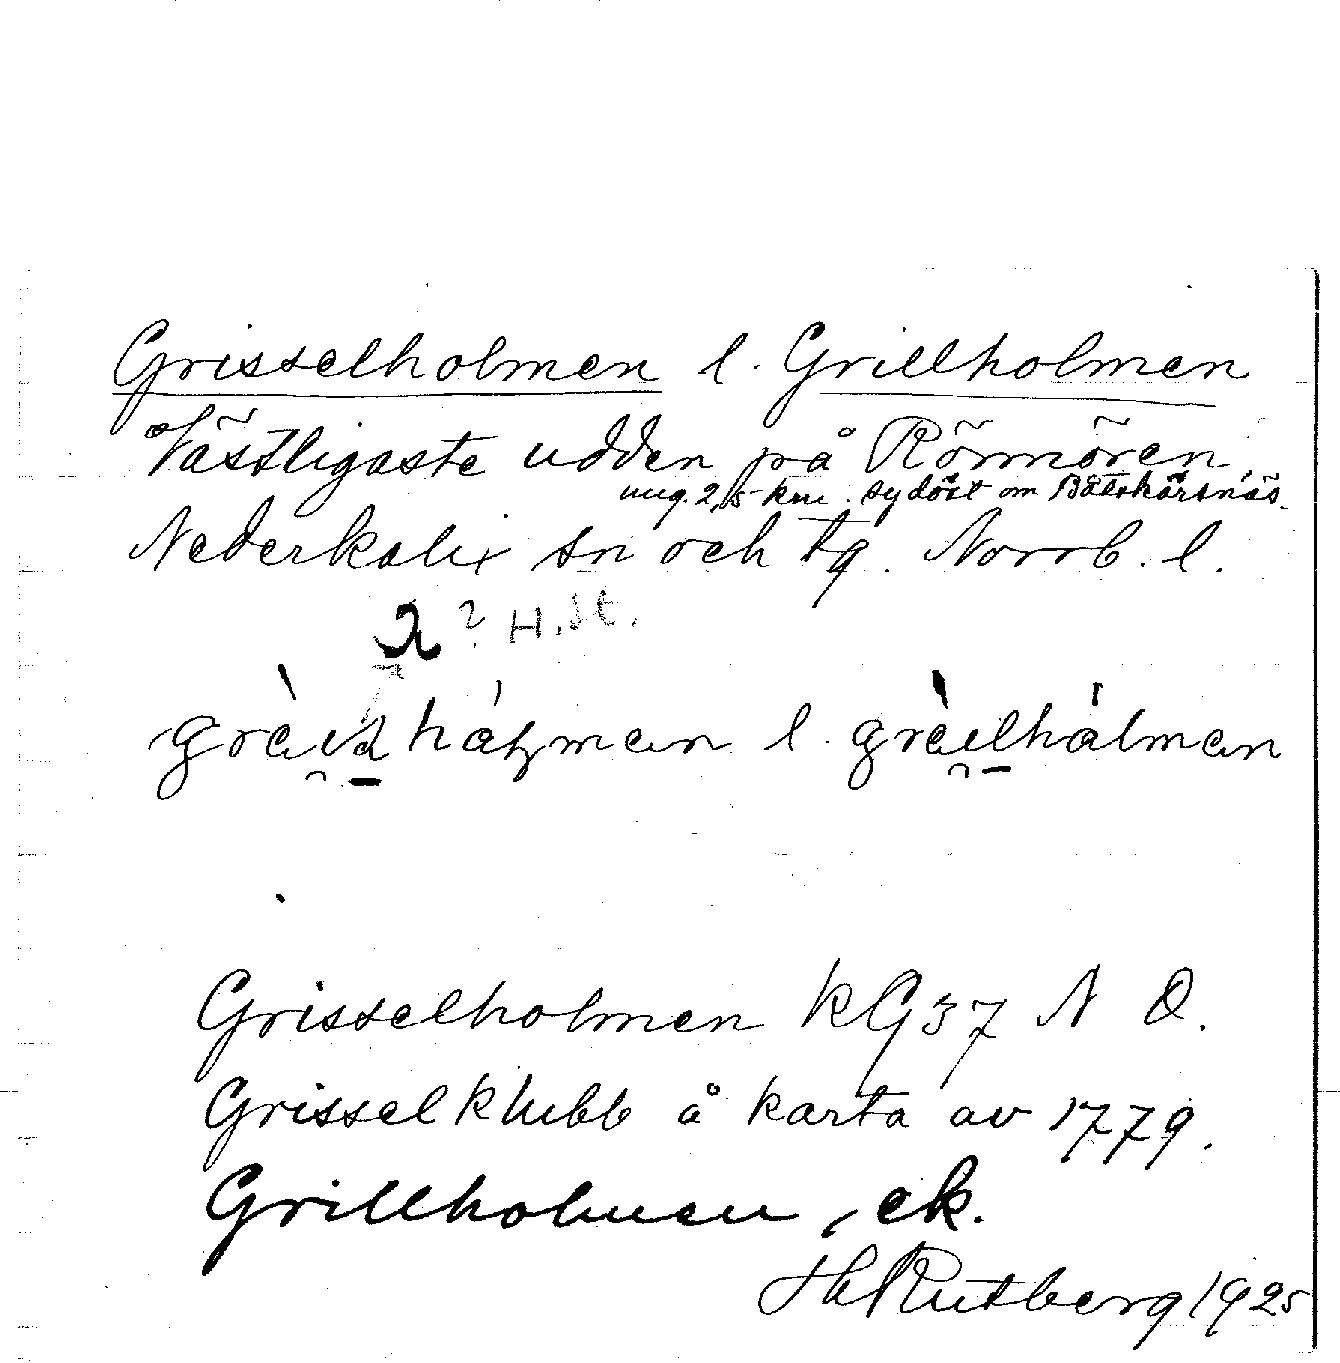 Grisselholmen l. Grillholmen
Västligaste udden på Rörmören,
ung. 2,5 km. sydöst om Båtskärsnäs.
Nederkalix sn och tg. Norrb. l.
? H. St.
l.
Grisselholmen kG 37 N O.
Grisselklubb å karta av 1779.
Grillholmen, ek.
Hb Rutberg 1925